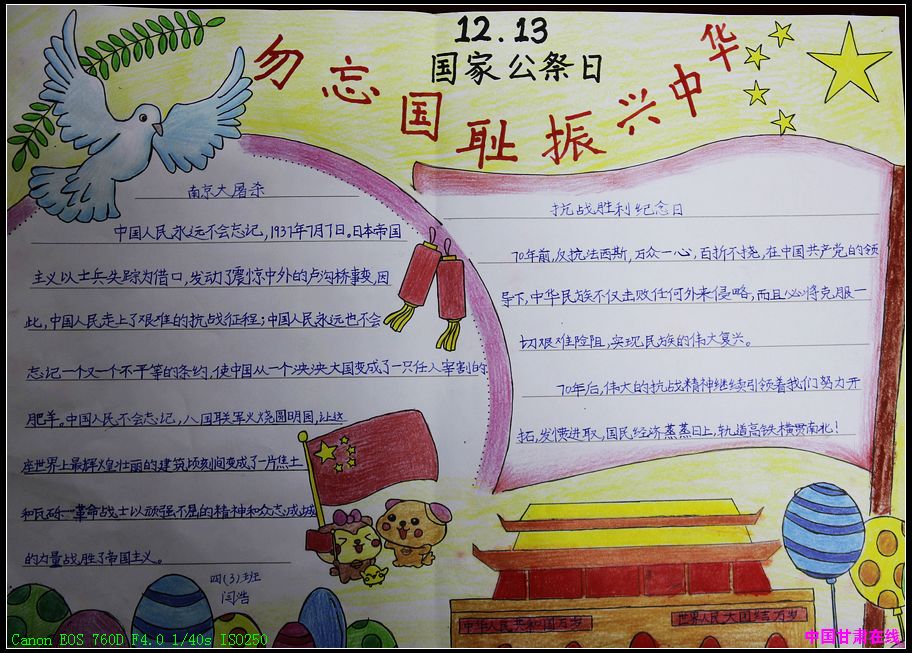 12.13
国家公祭日
勿忘国耻振兴中华
南京大屠杀
中国人民永远不会忘记,1937年7月7日。日本帝国
主义以士兵失踪为借口,发动了震惊中外的卢沟桥事变,因
此,中国人民走上了艰难的抗战征程;中国人民永远也不会
忘记一个又一个不平等的条约,使中国从一个泱泱大国变成了一只任人宰割的
肥羊。中国人民不会忘记,八国联军火烧圆明园,让这
座世界上最辉煌壮丽的建筑顷刻间变成了一片焦土
和瓦砾…革命战士以顽强不屈的精神和众志成城
的力量战胜了帝国主义。
四(3)班
闫浩
抗战胜利纪念日
70年前,反抗法西斯,万众一心,百折不挠,在中国共产党的领
导下,中华民族不仅击败任何外来侵略,而且必将克服一
切艰难险阻,实现民族的伟大复兴。
70年后,伟大的抗战精神继续引领着我们努力开
拓,发愤进取,国民经济蒸蒸日上,轨道高铁横贯南北!
中华人民共和国万岁
世界人民大团结万岁
Canon EOS 760D F4.0 1/40s ISO250
中国甘肃在线